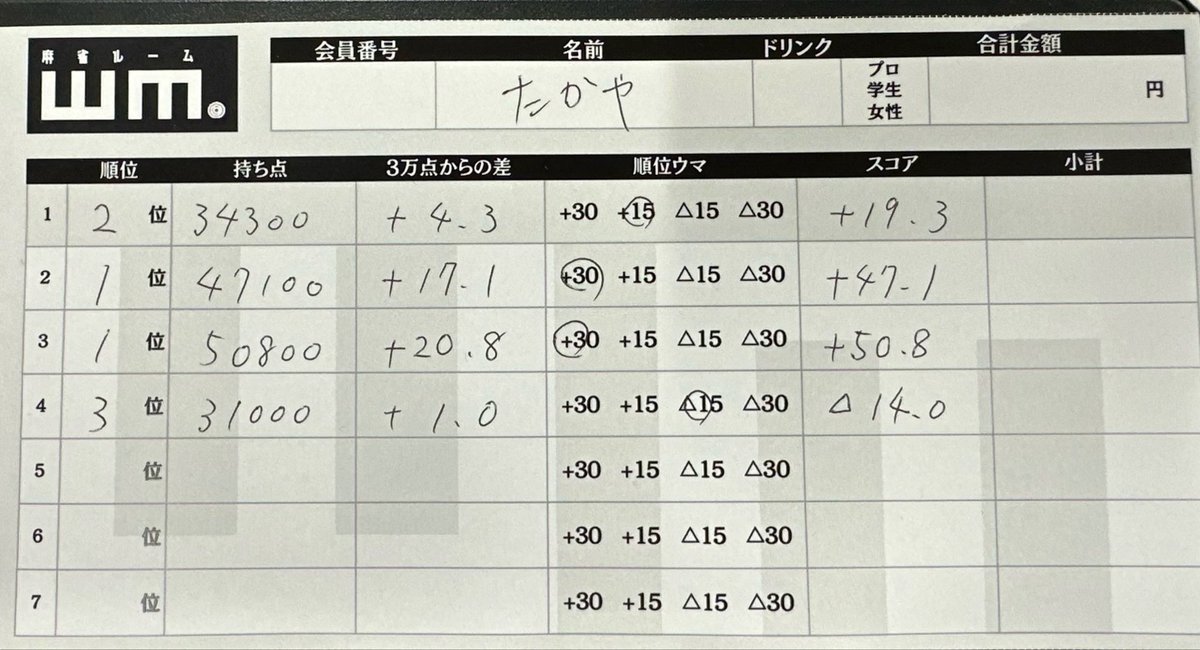 麻雀ルーム
WM.
会員番号 名前 ドリンク 合計金額
たかや プロ 学生 女性 円
順位 持ち点 3万点からの差 順位ウマ スコア 小計
1 2 位 34300 + 4.3 +30 +15 △15 △30 +19.3
2 1 位 47100 +17.1 +30 +15 △15 △30 +47.1
3 1 位 50800 +20.8 +30 +15 △15 △30 +50.8
4 3 位 31000 + 1.0 +30 +15 △15 △30 △14.0
5 位 +30 +15 △15 △30
6 位 +30 +15 △15 △30
7 位 +30 +15 △15 △30